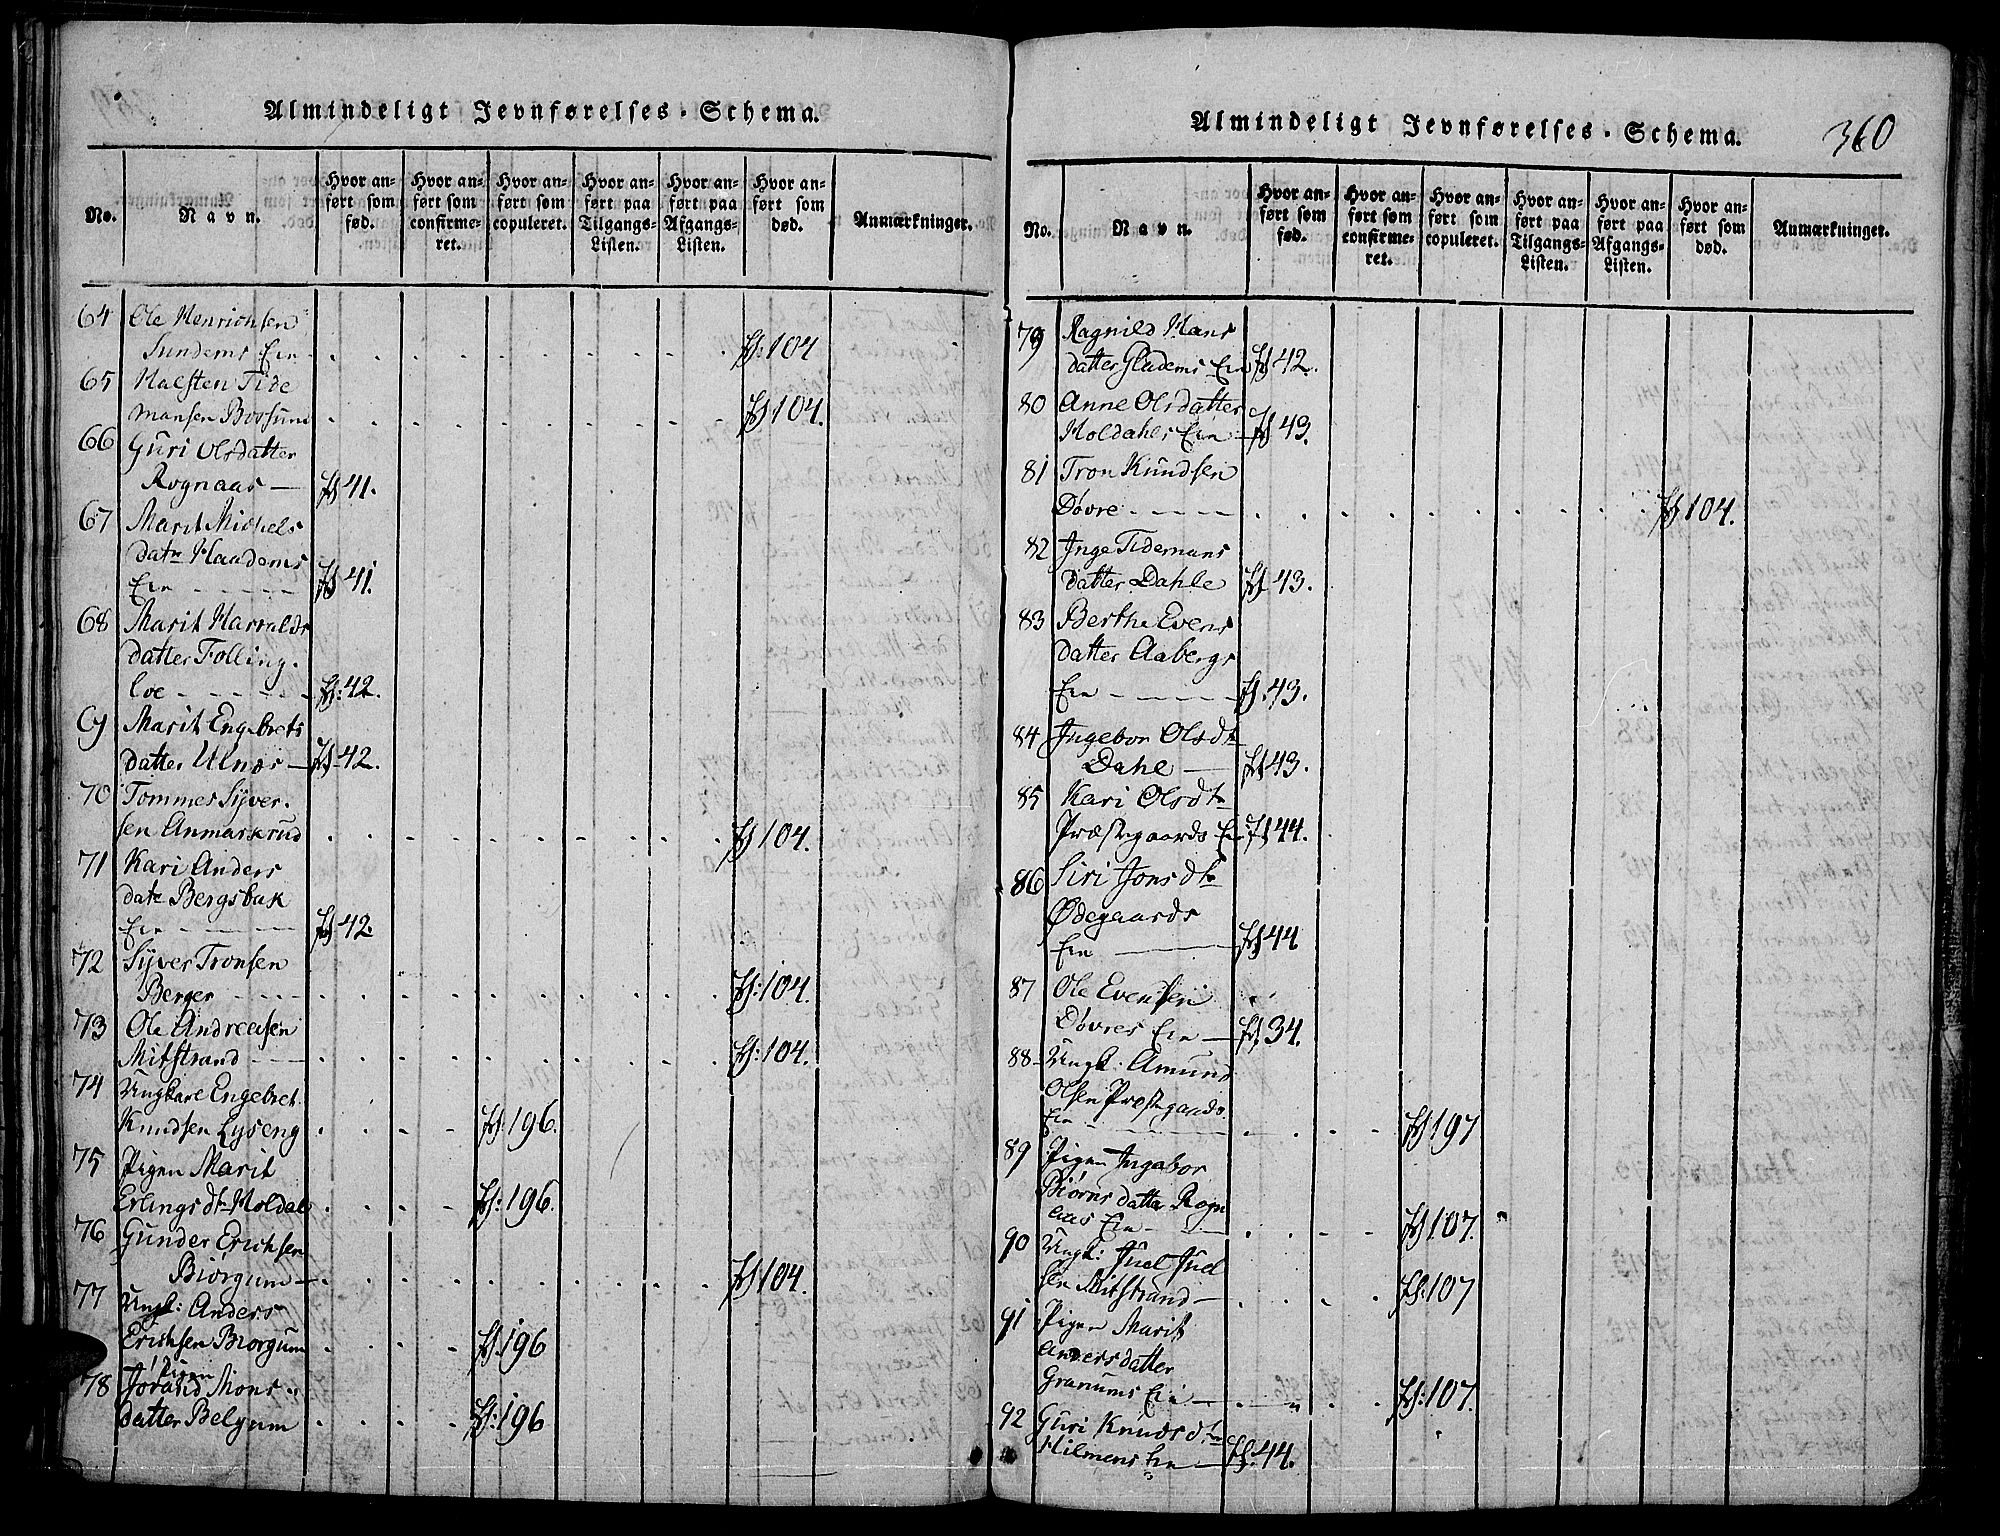 Almindeligt Jevnførelses-Schema.
No.
Navn.
Hvor anført som fød.
Hvor anført som confirmeret.
Hvor anført som copuleret.
Hvor anført paa Tilgangs-Listen.
Hvor anført paa Afgangs-Listen.
Hvor anført som død.
Anmærkninger.
64 Ole Henrichsen
Sundems Eie 104
65 Halsten Tide
mansen Bossum 104.
66 Guri Olsdatter
Rognaas 41.
67 Marit Michels
datr Haadems
Eie 41.
68 Marit Harralds
datter Følling.
loe 42.
69 Marit Engebrets
datter Ulnes 42.
70 Tommes Syver.
sen Anmarkrud 104.
71 Kari Anders
datr Bergsbak
Eie 42.
72 Syver Tronsen
Berger 104.
73 Ole Andreasen
Mitstrand 104.
74 Ungkarl Engebret
Knudsen Lyseng 196.
75 Pigen Marit
Erlings dtr Holdal 196.
76 Gunder Erichsen
Biørgum 104.
77 Ungk: Anders
Erichsen Biørgum 196
Pigen
78 Jørand Mons
datter Belgum 196
Almindeligt Jevnførelses-Schema.
360
No.
Navn.
Hvor anført som fød.
Hvor anført som confirmeret.
Hvor anført som copuleret.
Hvor anført paa Tilgangs-Listen.
Hvor anført paa Afgangs-Listen.
Hvor anført som død.
Anmærkninger.
79 Ragnild Hans
datter Gladems Eie 42.
80 Anne Olsdatter
Holdahls Eie 43.
81 Tron Knudsen
Døvre 104.
82 Inge Tidemans
datter Dahle 43.
83 Berthe Evens
datter Aabergs
Eie 43.
84 Ingebor Olsdtr
Dahl 43.
85 Kari Olsdtr
Præstegaards Eie 44.
86 Siri Jonsdtr
Ødegaards
Eie 44
87 Ole Evensen
Døvres Eie 34.
88 Ungk: Amund
Olsen Præstegaards
Eie 197
89 Pigen Ingebor
Biørns datter Rogn
aas Eie 107.
90 Ungk: Juel Juel
sen Mitstrand 107
91 Pigen Marit
Andersdatter
Granums Eie 107.
92 Guri Knuds dtr
Hilmens Eie 44.